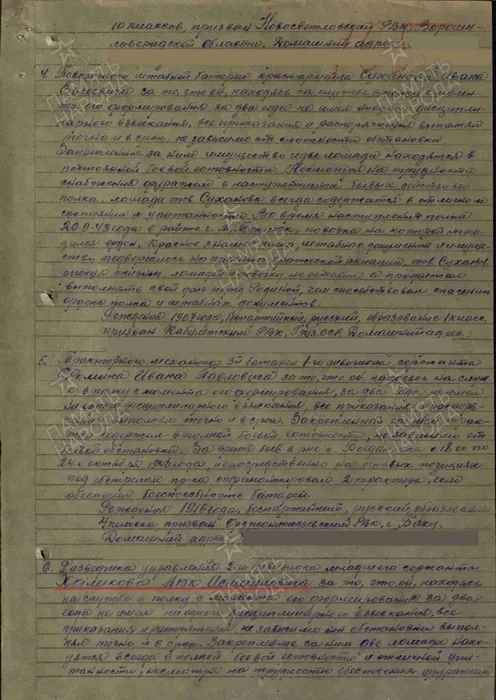 10 классов, призван Новосветловский РВК, Вороши-
ловоградской области, Домашний адрес:
4. Повозочного штабной батареи красноармейца Суханова Ивана
за то, что он, находясь на службе в полку с момен-
та его формирования за два года не имел ни одного дисципли-
нарного взыскания, все приказания и распоряжения выполнял
точно и в срок, не зависимо от сложности обстановки.
Закрепленное за ним имущество и две лошади находятся в
постоянной боевой готовности. Несмотря на трудности
снабжения фуражом в наступательных боевых действиях
полка, лошади тов. Суханова всегда содержатся в отличном
состоянии и упитанности. Во время наступления полка
20.9.43 года в районе повозка на которой нахо-
дились орден, Красное знамя полка, штабные документы и имуще-
ство подверглось авиации, тов. Суханов,
рискуя жизнью лошадей и повозку не оставил а продолжал
выполнять свой долг перед Родиной, чем способствовал спасению
ордена полка и штабных документов.
Рождения 1907 года, беспартийный, русский, образование 1 класс,
призван РВК, Груз. ССР, Домашний адрес:
5. Тракторного механика 3й батареи 1-го дивизиона сержанта
Фомина Ивана Павловича за то, что он находясь на служ-
бе в полку с момента его формирования, за два года не имел
ни одного дисциплинарного взыскания, все приказания и распо-
выполнял точно и в срок. Закрепленный за ним трак-
тор содержал в полной боевой готовности, не зависимо от
боевой обстановки. За время боев в с 18 го по
24 октября 1943 года, непосредственно на огневых позициях
под обстрелом пр-ка отремонтировал 2 трактора, чем
обеспечил боеспособность батарей.
Рождения 1916 года, беспартийный, русский, образование
4 класса призван Орджоникидзевский РВК, г. Баку.
Домашний адрес:
6. Разведчика управления 2-го дивизиона младшего сержанта
Халикова за то, что он, находясь
на службе в полку с момента его формирования за два
года не имел ни одного дисциплинарного взыскания, все
приказания и распоряжения не зависимо от обстановки выпол-
нял точно и в срок. Закрепленные за ним две лошади нахо-
дятся всегда в полной боевой готовности и отличной упи-
танности, несмотря на трудности обеспечения фуражом